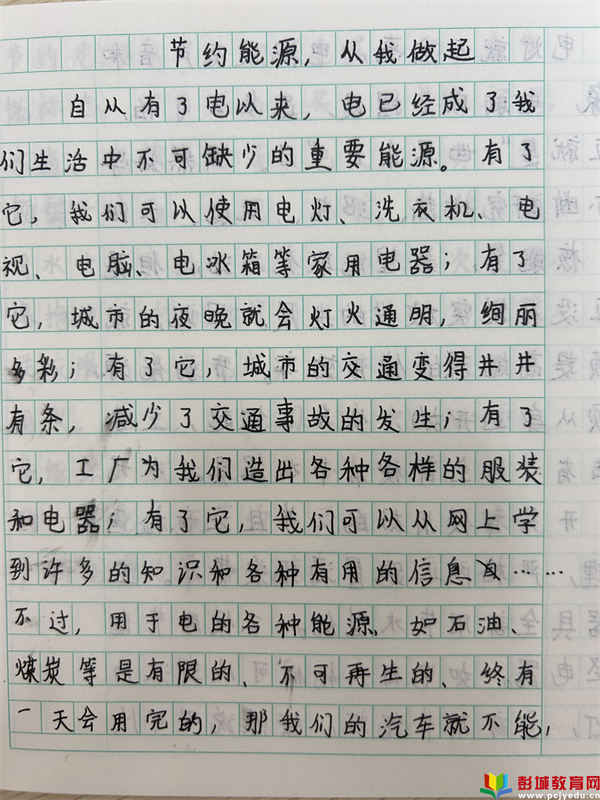 节约能源，从我做起
自从有了电以来，电已经成了我
们生活中不可缺少的重要能源。有了
它，我们可以使用电灯、洗衣机、电
视、电脑、电冰箱等家用电器；有了
它，城市的夜晚就会灯火通明，绚丽
多彩；有了它，城市的交通变得井井
有条，减少了交通事故的发生；有了
它，工厂为我们造出各种各样的服装
和电器；有了它，我们可以从网上学
到许多的知识和各种有用的信息……
不过，用于电的各种能源、如石油、
煤炭等是有限的、不可再生的、终有
一天会用完的，那我们的汽车就不能，
彭城教育网
www.pcjyedu.cn